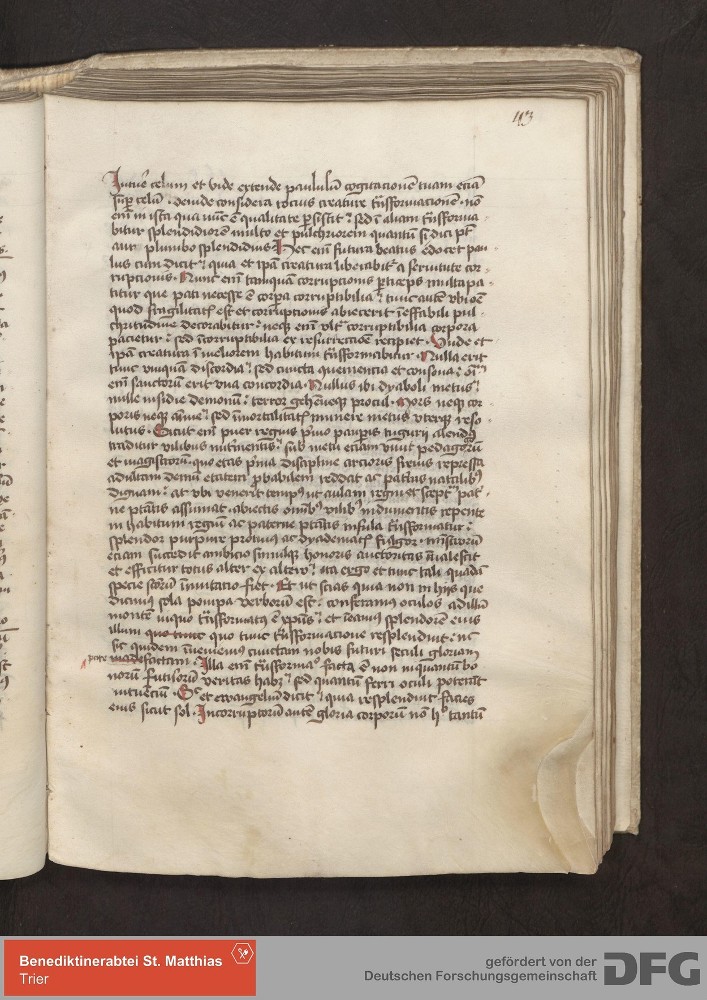 43
Intuē celum et vide extende paululū cogitacionē tuam eciā
sup̄ celū · deinde considera tocius creature trāsformacionē · nō
em̄ in ista qua nūc ē qualitate p̄sistit sed ī aliam trāsforma
bitur splendidiorē multo et pulchriorem quantū si dici pt̄
auꝝ plumbo splendidius · Hec em̄ futura beatus edocet pau
lus cum dicit quia et ip̄a creatura liberabitᷣ a servitute cor
rupcionis · Nunc em̄ tamquā corruptionis p̄ticeps multa pa
titur que pati necesse ē corpa corruptibilia tunc autē ubi oē
quod fragilitatꝭ est et corruptionis abiecerit ineffabili pul
chritudine decorabitur neqꝫ em̄ ultᵃ corruptibilia corpora
pacietur sed īcorruptibilia ex resurrectiōe recipiet · Unde et
ip̄a creatura ī meliorem habitum trāsformabitur · Nulla erit
tunc unquā discordia sed cuncta quementia et consona om̄
em̄ sanctorū erit una concordia · Nullus ibi dyaboli metus
nulle insidie demonū terror gehēneqꝫ procul · Mors neqꝫ cor
poris neqꝫ aīme sed īmortalitatꝭ munere metus uterqꝫ reso
lutus · Sicut em̄ puer regius p̄mo paup̄is tugurij alendꝰ
traditur vilibus nutᵉmentis sub metu eciam vivit pedagogorū
et magistrorū · quo etas p̄ma discipline arcioris frenis repressa
adultam demū etatem p̄babilem reddat ac pat̄nis natalibꝰ
dignam at ubi venerit tempꝰ ut aulam regni et sceptᵃ pat̄
ne ptāts assumat · abiectis om̄ibꝰ vilibꝰ indumentis repente
in habitum regiū ac paterne ptāts insula trāsformatur
splendor purpure protinus ac dyadematꝭ fulgor · ministrorū
eciam succedit ambicio simulqꝫ honoris auctoritas īvalescit
et efficitur totus alter ex altero ita ergo et tunc tali quadā
specie sctorū īmutatio fiet · Et ut scias quia non in hijs que
dicimꝰ sola pompa verborū est conferamꝰ oculos ad illū
montē in quo trāsformatꝰ ē xpūs et videamꝰ splendorē eius
illum quo tunc quo tunc trāsformacione resplenduit nc̄
sic quidem īveniemꝰ cunctam nobis futuri seculi gloriam
patefactam · Illa em̄ trāsformaᵒ facta ē non inquantū bo
norū futurorū veritas habꝫ sed quantū ferri oculi poterāt
intuenciū · Sic et ewangeliū dicit quia resplenduit facies
eius sicut sol · Incorruptorū autē gloria corporū nō hᵒ tantū
Benediktinerabtei St. Matthias
Trier
gefördert von der
Deutschen Forschungsgemeinschaft
DFG